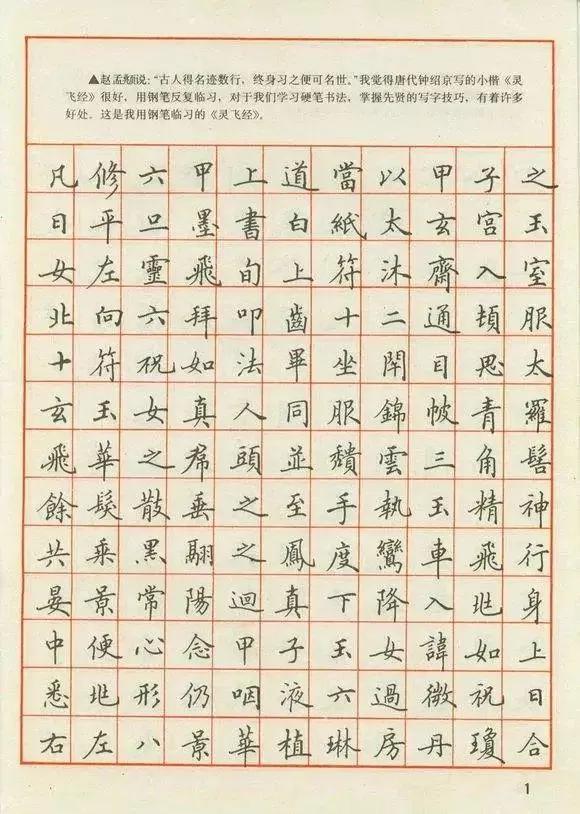 ▲赵孟頫说：“古人得名迹数行，终身习之便可名世。”我觉得唐代钟绍京写的小楷《灵
飞经》很好，用钢笔反复临习，对于我们学习硬笔书法，掌握先贤的写字技巧，有着许多
好处。这是我用钢笔临习的《灵飞经》。
凡修六甲上道當以甲子之
日平旦墨書白紙太玄宮玉
女左靈飛旬上符沐齋入室
北向六拜叩齒十二通頓服
十符祝如法畢坐閇目思太
玄玉女真人同服錦帔青羅
飛華之帬頭並頽雲三角髻
餘髮散垂之至手執玉精神
共乘黑翮之鳳度鸞車飛行
晏景常陽迴真下降入兆身
中便心念甲子玉女諱如上
悉兆形仍咽液六過微祝曰
右左八景華植琳房丹瓊合
1